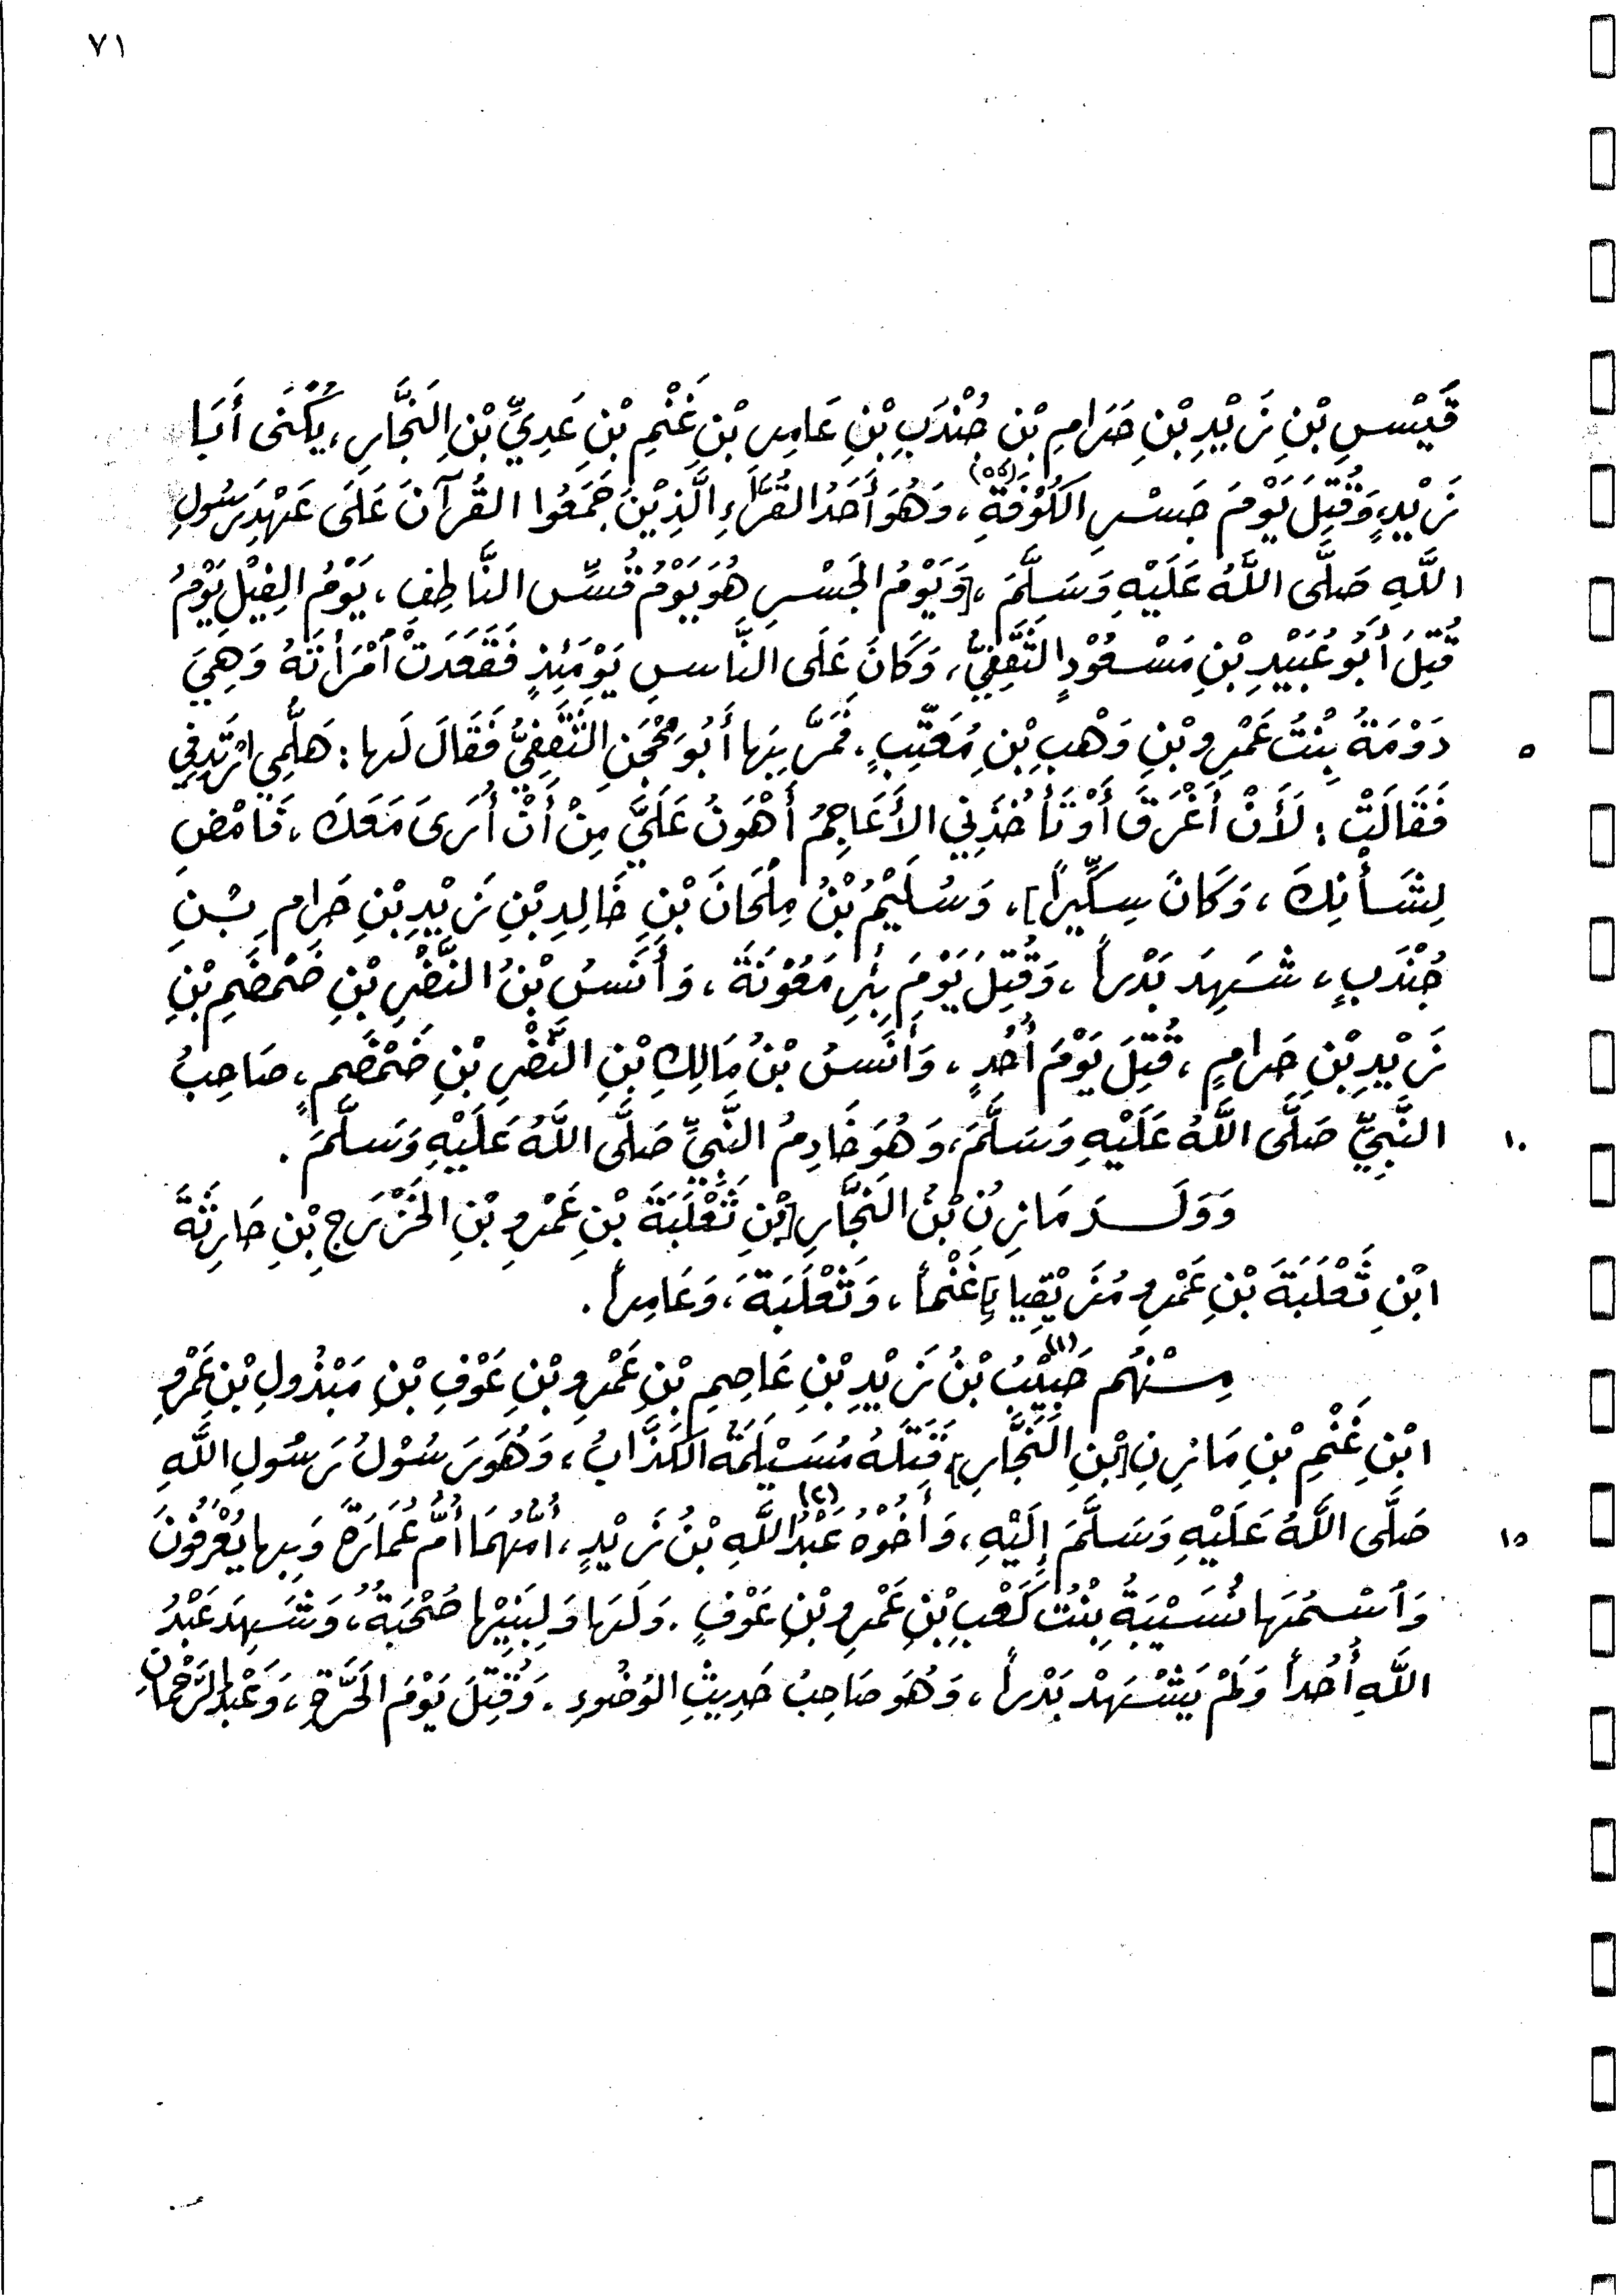 ٧١
قَيْسِ بْنِ زَيْدِ بْنِ حَرَامِ بْنِ جُنْدَبِ بْنِ عَامِرِ بْنِ غَنْمِ بْنِ عَدِيِّ بْنِ النَّجَّارِ، يُكْنَى أَبَا
زَيْدٍ، وَقُتِلَ يَوْمَ جِسْرِ الكُوْفَةِ، وَهُوَ أَحَدُ القُرَّاءِ الَّذِيْنَ جَمَعُوا القُرآنَ عَلَى عَهْدِ رَسُولِ
اللَّهِ صَلَّى اللَّهُ عَلَيْهِ وَسَلَّمَ، [وَيَوْمُ الجَسْرِ هُوَ يَوْمُ قُسِّ النَّاطِفِ، يَوْمُ الفِيْلِ يَوْمُ
قُتِلَ أَبُو عُبَيْدِ بْنِ مَسْعُوْدٍ الثَّقَفِيُّ، وَكَانَ عَلَى النَّاسِ يَوْمَئِذٍ فَقَعَدَتْ أمْرَأتَهُ وَهِيَ
٥ دَوْمَةُ بِنْتُ عَمْرِو بْنِ وَهْبِ بْنِ مُعَتِّبٍ. فَمَرَّ بِهَا أَبُو مِحْجَنِ الثَّقَفِيُّ فَقَالَ لَها: هَلُمِّي ارْتَدِفِي
فَقَالَتْ: لَأَنْ أَغْرَقَ أَوْ تَأْخُذَنِي الأَعَاجِمُ أَهْوَنُ عَلَيَّ مِنْ أَنْ أُرَى مَعَكَ، فَامْضِ
لِشَأْنِكَ، وَكَانَ سِكِّيراً]، وَسُلَيْمُ بْنُ مِلْحَانَ بْنِ خَالِدِ بْنِ زَيْدِ بْنِ حَرَامِ بْنِ
جُنْدَبٍ، شَهِدَ بَدْراً، وَقُتِلَ يَوْمَ بِئْرِ مَعُوْنَةَ، وَأَنَسُ بْنُ النَّضْرِ بْنِ ضَمْضَمِ بْنِ
زَيْدِ بْنِ حَرَامٍ، قُتِلَ يَوْمَ أُحُدٍ، وَأَنَسُ بْنُ مَالِكِ بْنِ النَّضْرِ بْنِ ضَمْضَمٍ، صَاحِبُ
١٠ النَّبِيِّ صَلَّى اللَّهُ عَلَيْهِ وَسَلَّمَ، وَهُوَ خَادِمُ النَّبِيِّ صَلَّى اللَّهُ عَلَيْهِ وَسَلَّمَ.
وَوَلَدَ مَازِنُ بْنُ النَّجَّارِ [بْنِ ثَعْلَبَةَ بْنِ عَمْرِو بْنِ الخَزْرَجِ بْنِ حَارِثَةَ
ابْنِ ثَعْلَبَةَ بْنِ عَمْرٍو مُزَيْقِيا] غَنْماً، وَثَعْلَبَةَ، وَعَامِراً.
مِنْهُم حَبِيْبُ(١) بْنُ زَيْدِ بْنِ عَاصِمِ بْنِ عَمْرِو بْنِ عَوْفِ بْنِ مَبْذُولِ بْنِ عَمْرِو
ابْنِ غَنْمِ بْنِ مَازِنِ [بْنِ النَّجَّارِ] قَتَلَهُ مُسَيْلَمَةُ الكَذَّابُ، وَهُوَ رَسُوْلُ رَسُولِ اللَّهِ
١٥ صَلَّى اللَّهُ عَلَيْهِ وَسَلَّمَ إِلَيْهِ، وَأَخُوْهُ عَبْدُ(٢) اللَّهِ بْنُ زَيْدٍ، أُمُّهُمَا أُمُّ عُمَارَةَ وَبِها يُعْرَفُونَ
وَأسْمُهَا نُسَيْبَةُ بِنْتُ كَعْبِ بْنِ عَمْرِو بْنِ عَوْفٍ. وَلَهَا وَلِبَنِيْها صُحْبَةٌ، وَشَهِدَ عَبْدُ
اللَّهِ أُحُداً وَلَمْ يَشْهَدْ بَدْراً، وَهُوَ صَاحِبُ حَدِيثِ الوُضُوءِ. وَقُتِلَ يَوْمَ الحَرَّةِ، وَعَبْدُ الرَّحْمَانِ